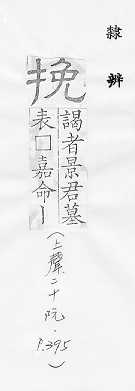 隸辨
挽
謁者景君墓
表□嘉命｜
（上聲二十阮．P.395）